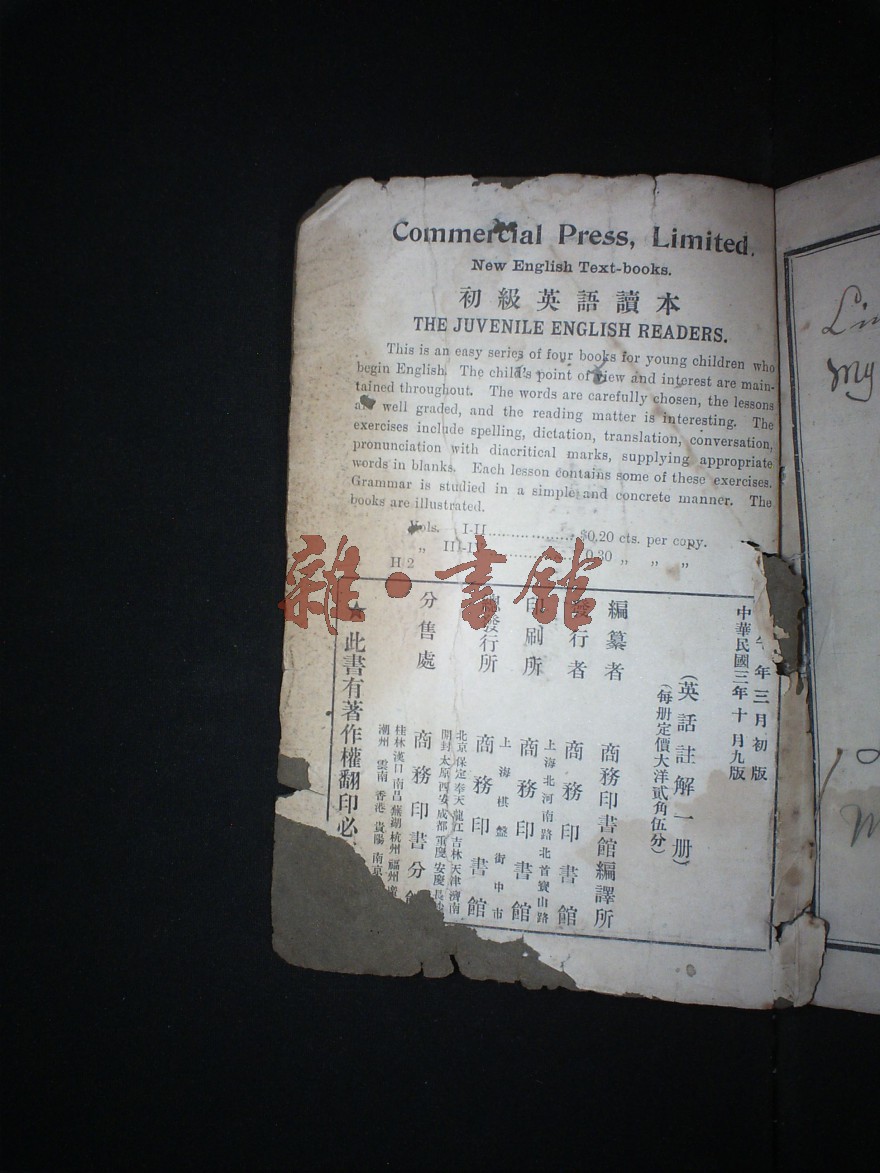 Commercial Press, Limited.
New English Text-books.
初級英語讀本
THE JUVENILE ENGLISH READERS.
This is an easy series of four books for young children who
begin English. The child's point of view and interest are main-
tained throughout. The words are carefully chosen, the lessons
are well graded, and the reading matter is interesting. The
exercises include spelling, dictation, translation, conversation,
pronunciation with diacritical marks, supplying appropriate
words in blanks. Each lesson contains some of these exercises.
Grammar is studied in a simple and concrete manner. The
books are illustrated.
Vols. I-II.................... $0.20 cts. per copy.
„ III-IV 0.30 „ „ „
H 2
雜·書館
年三月初版
中華民國三年十月九版
(英話註解一册)
(每册定價大洋貳角伍分)
編纂者 商務印書館編譯所
發行者 商務印書館
上海北河南路北首寶山路
印刷所 商務印書館
上海棋盤街中市
總發行所 商務印書館
北京保定奉天龍江吉林天津濟南
開封太原西安成都重慶安慶長沙
分售處 商務印書分館
桂林漢口南昌蕪湖杭州福州廣
潮州雲南香港貴陽南京
★此書有著作權翻印必
My